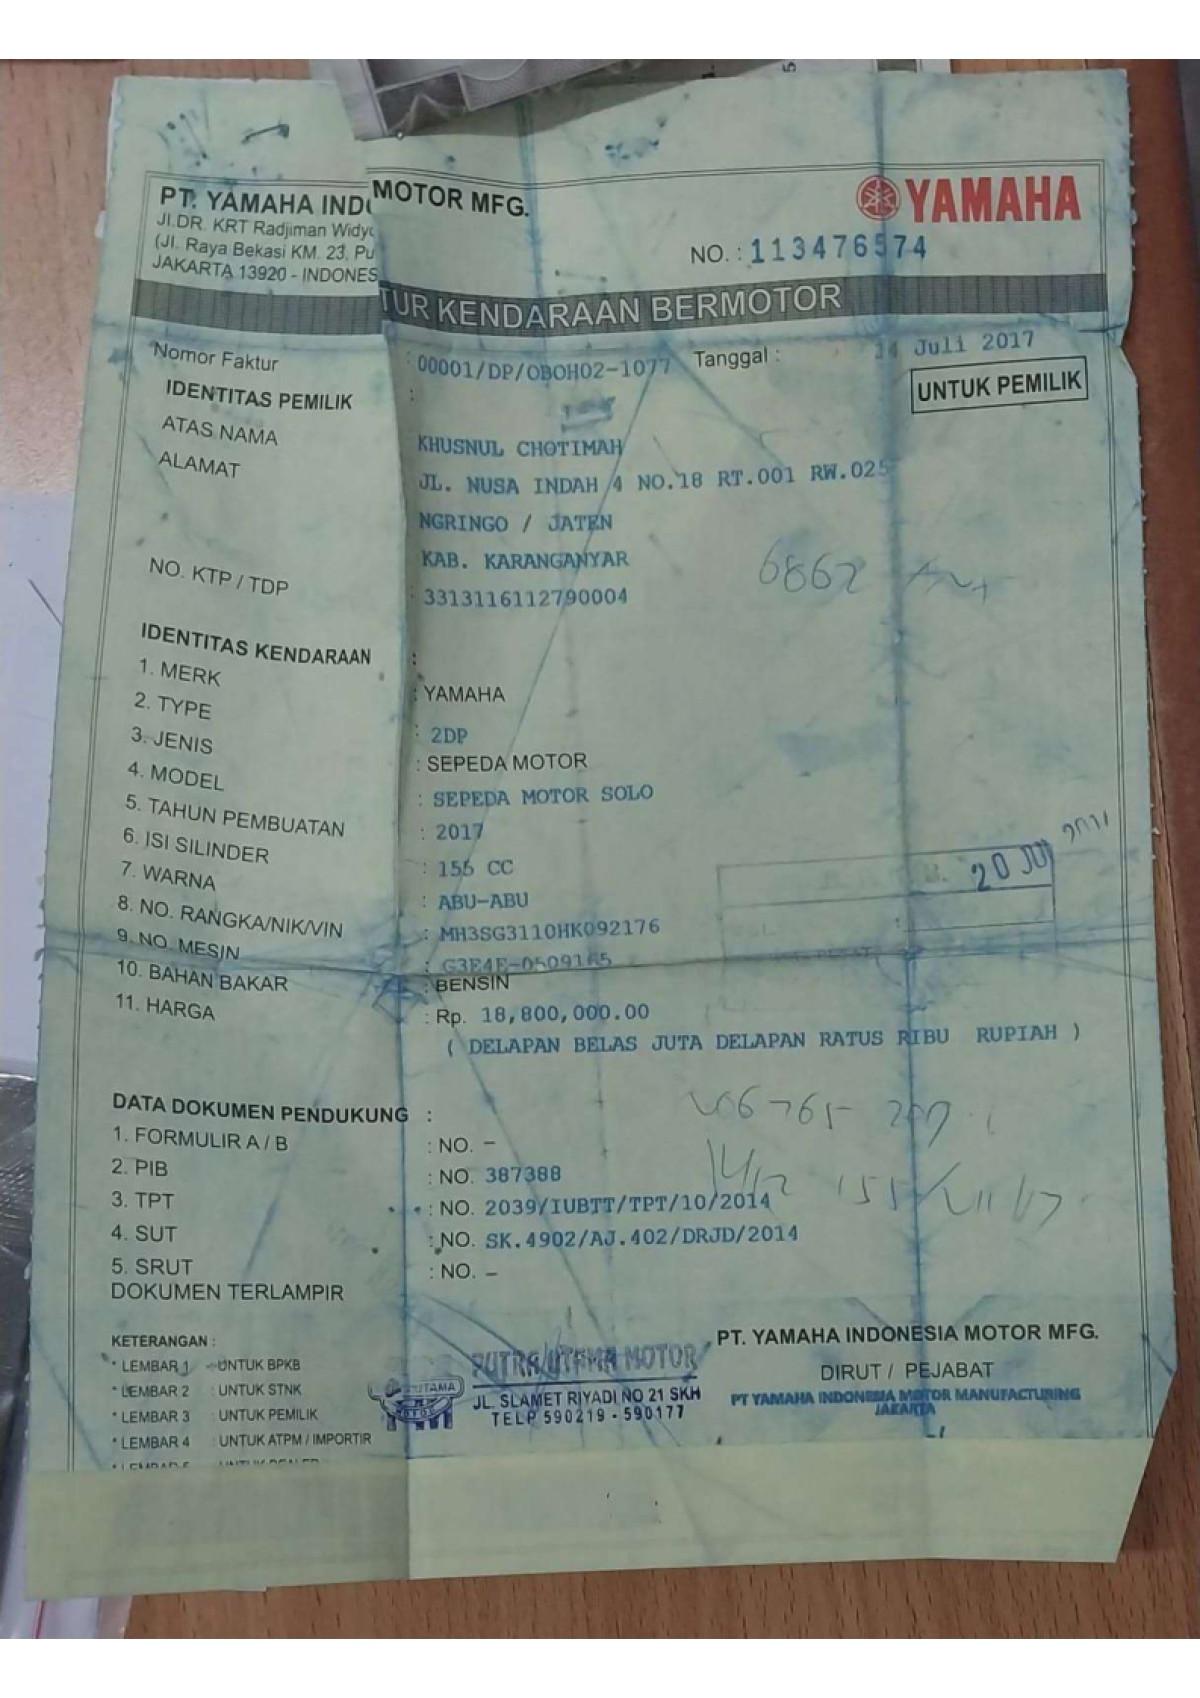 PT. YAMAHA INDO MOTOR MFG.
Jl.DR. KRT Radjiman Widyo
(Jl. Raya Bekasi KM. 23, Pu
JAKARTA 13920 - INDONES
YAMAHA
NO. : 113476574
TUR KENDARAAN BERMOTOR
Nomor Faktur : 00001/DP/OBOH02-1077 Tanggal : 14 Juli 2017
IDENTITAS PEMILIK :
UNTUK PEMILIK
ATAS NAMA KHUSNUL CHOTIMAH
ALAMAT JL. NUSA INDAH 4 NO.18 RT.001 RW.025
NGRINGO / JATEN
KAB. KARANGANYAR
NO. KTP / TDP : 3313116112790004
6862
IDENTITAS KENDARAAN :
1. MERK : YAMAHA
2. TYPE : 2DP
3. JENIS : SEPEDA MOTOR
4. MODEL : SEPEDA MOTOR SOLO
5. TAHUN PEMBUATAN : 2017
6. ISI SILINDER : 155 CC
7. WARNA : ABU-ABU
8. NO. RANGKA/NIK/VIN : MH3SG3110HK092176
9. NO. MESIN : G3E4E-0509165
10. BAHAN BAKAR : BENSIN
11. HARGA : Rp. 18,800,000.00
( DELAPAN BELAS JUTA DELAPAN RATUS RIBU RUPIAH )
20 JU
DATA DOKUMEN PENDUKUNG :
1. FORMULIR A / B : NO. -
2. PIB : NO. 387388
3. TPT : NO. 2039/IUBTT/TPT/10/2014
4. SUT : NO. SK.4902/AJ.402/DRJD/2014
5. SRUT : NO. -
DOKUMEN TERLAMPIR
KETERANGAN :
* LEMBAR 1 : UNTUK BPKB
* LEMBAR 2 : UNTUK STNK
* LEMBAR 3 : UNTUK PEMILIK
* LEMBAR 4 : UNTUK ATPM / IMPORTIR
PUTRA UTAMA MOTOR
JL. SLAMET RIYADI NO 21 SKH
TELP 590219 - 590177
PT. YAMAHA INDONESIA MOTOR MFG.
DIRUT / PEJABAT
PT YAMAHA INDONESIA MOTOR MANUFACTURING
JAKARTA